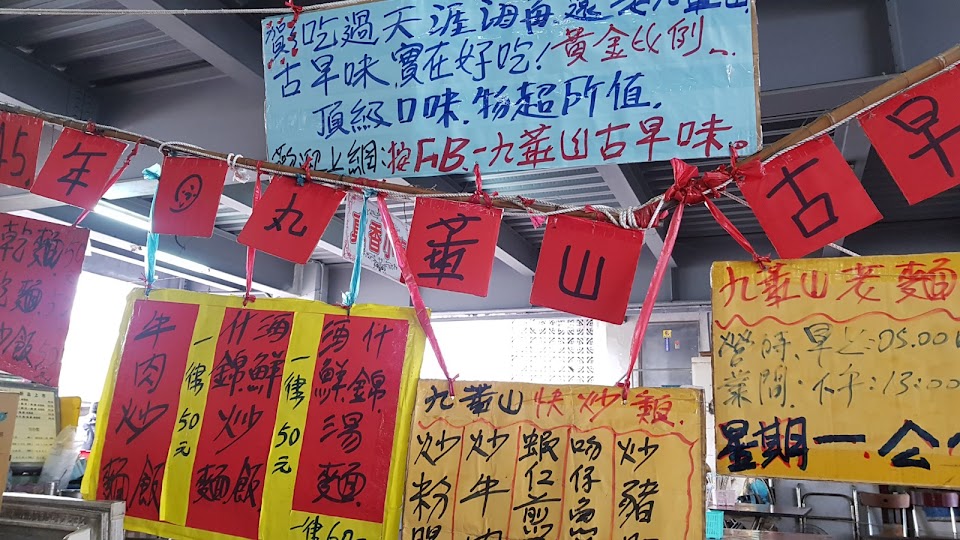 吃過天涯海角還是九華山
古早味實在好吃！黃金比例
頂級口味.物超所值.
上網:按FB.九華山古早味。
45.年㊣九華山古早
乾麵
炒麵
炒飯
牛肉炒麵飯
一律50元
什錦海鮮炒麵飯
一律50元
什錦海鮮湯麵
一律60
九華山快炒類.
炒粉
炒牛肉
蝦仁煎
吻仔魚
炒豬
九華山老麵
營業時間:早上:05.00
下午:13:00
星期一.公